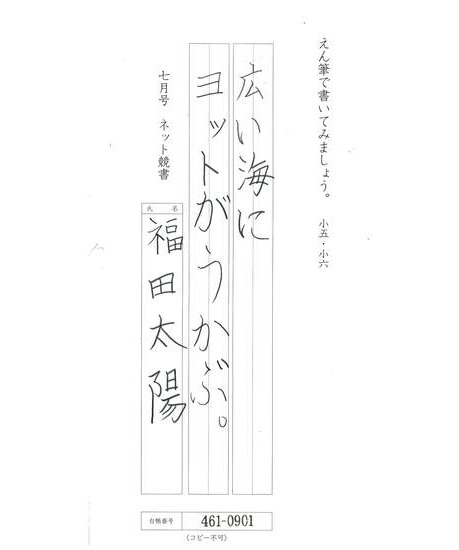 えん筆で書いてみましょう。 小五・小六
広い海に
ヨットがうかぶ。
七月号 ネット競書
氏名
福田太陽
台帳番号 461-0901
(コピー不可)